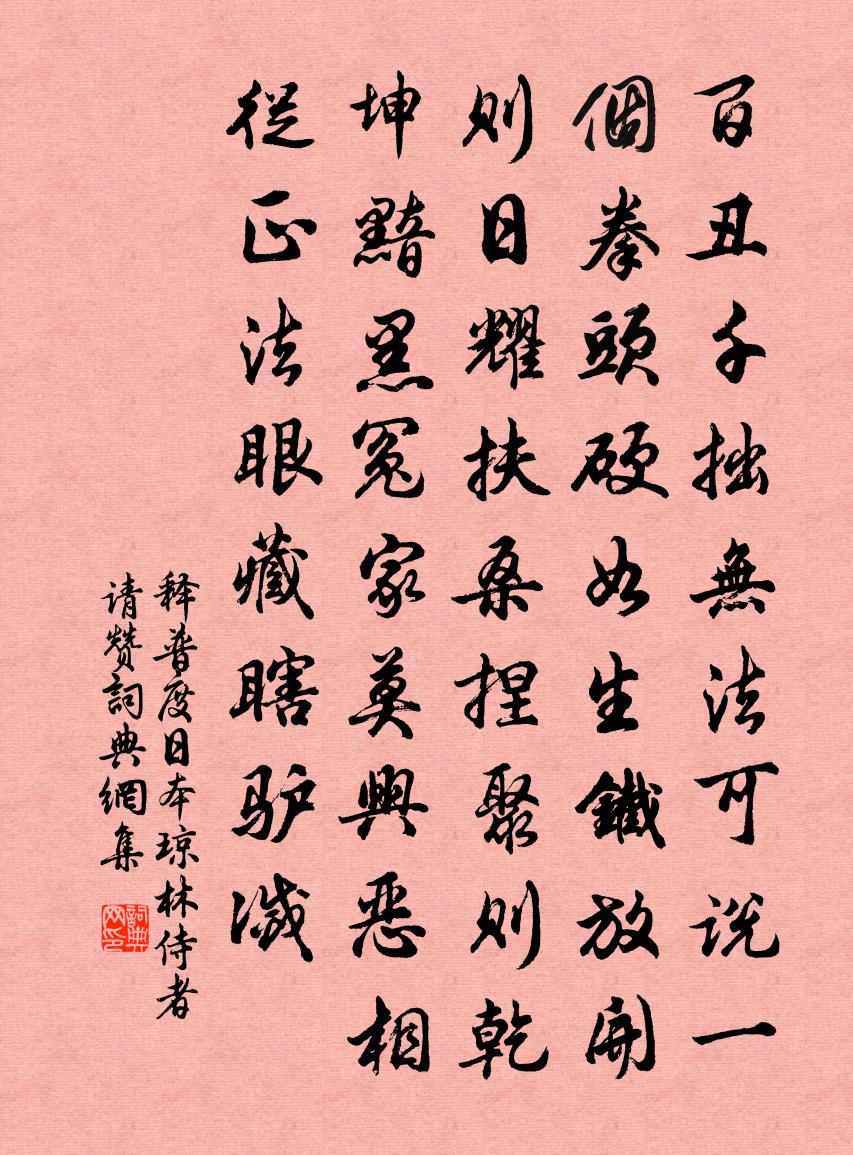 百丑千拙無法可说一
個拳頭硬如生鐵放開
则日耀扶桑捏聚则乾
坤黯黑冤家莫興恶相
從正法眼藏瞎驴滅
释普度日本琼林侍者
请赞詞典網集
詞典网印